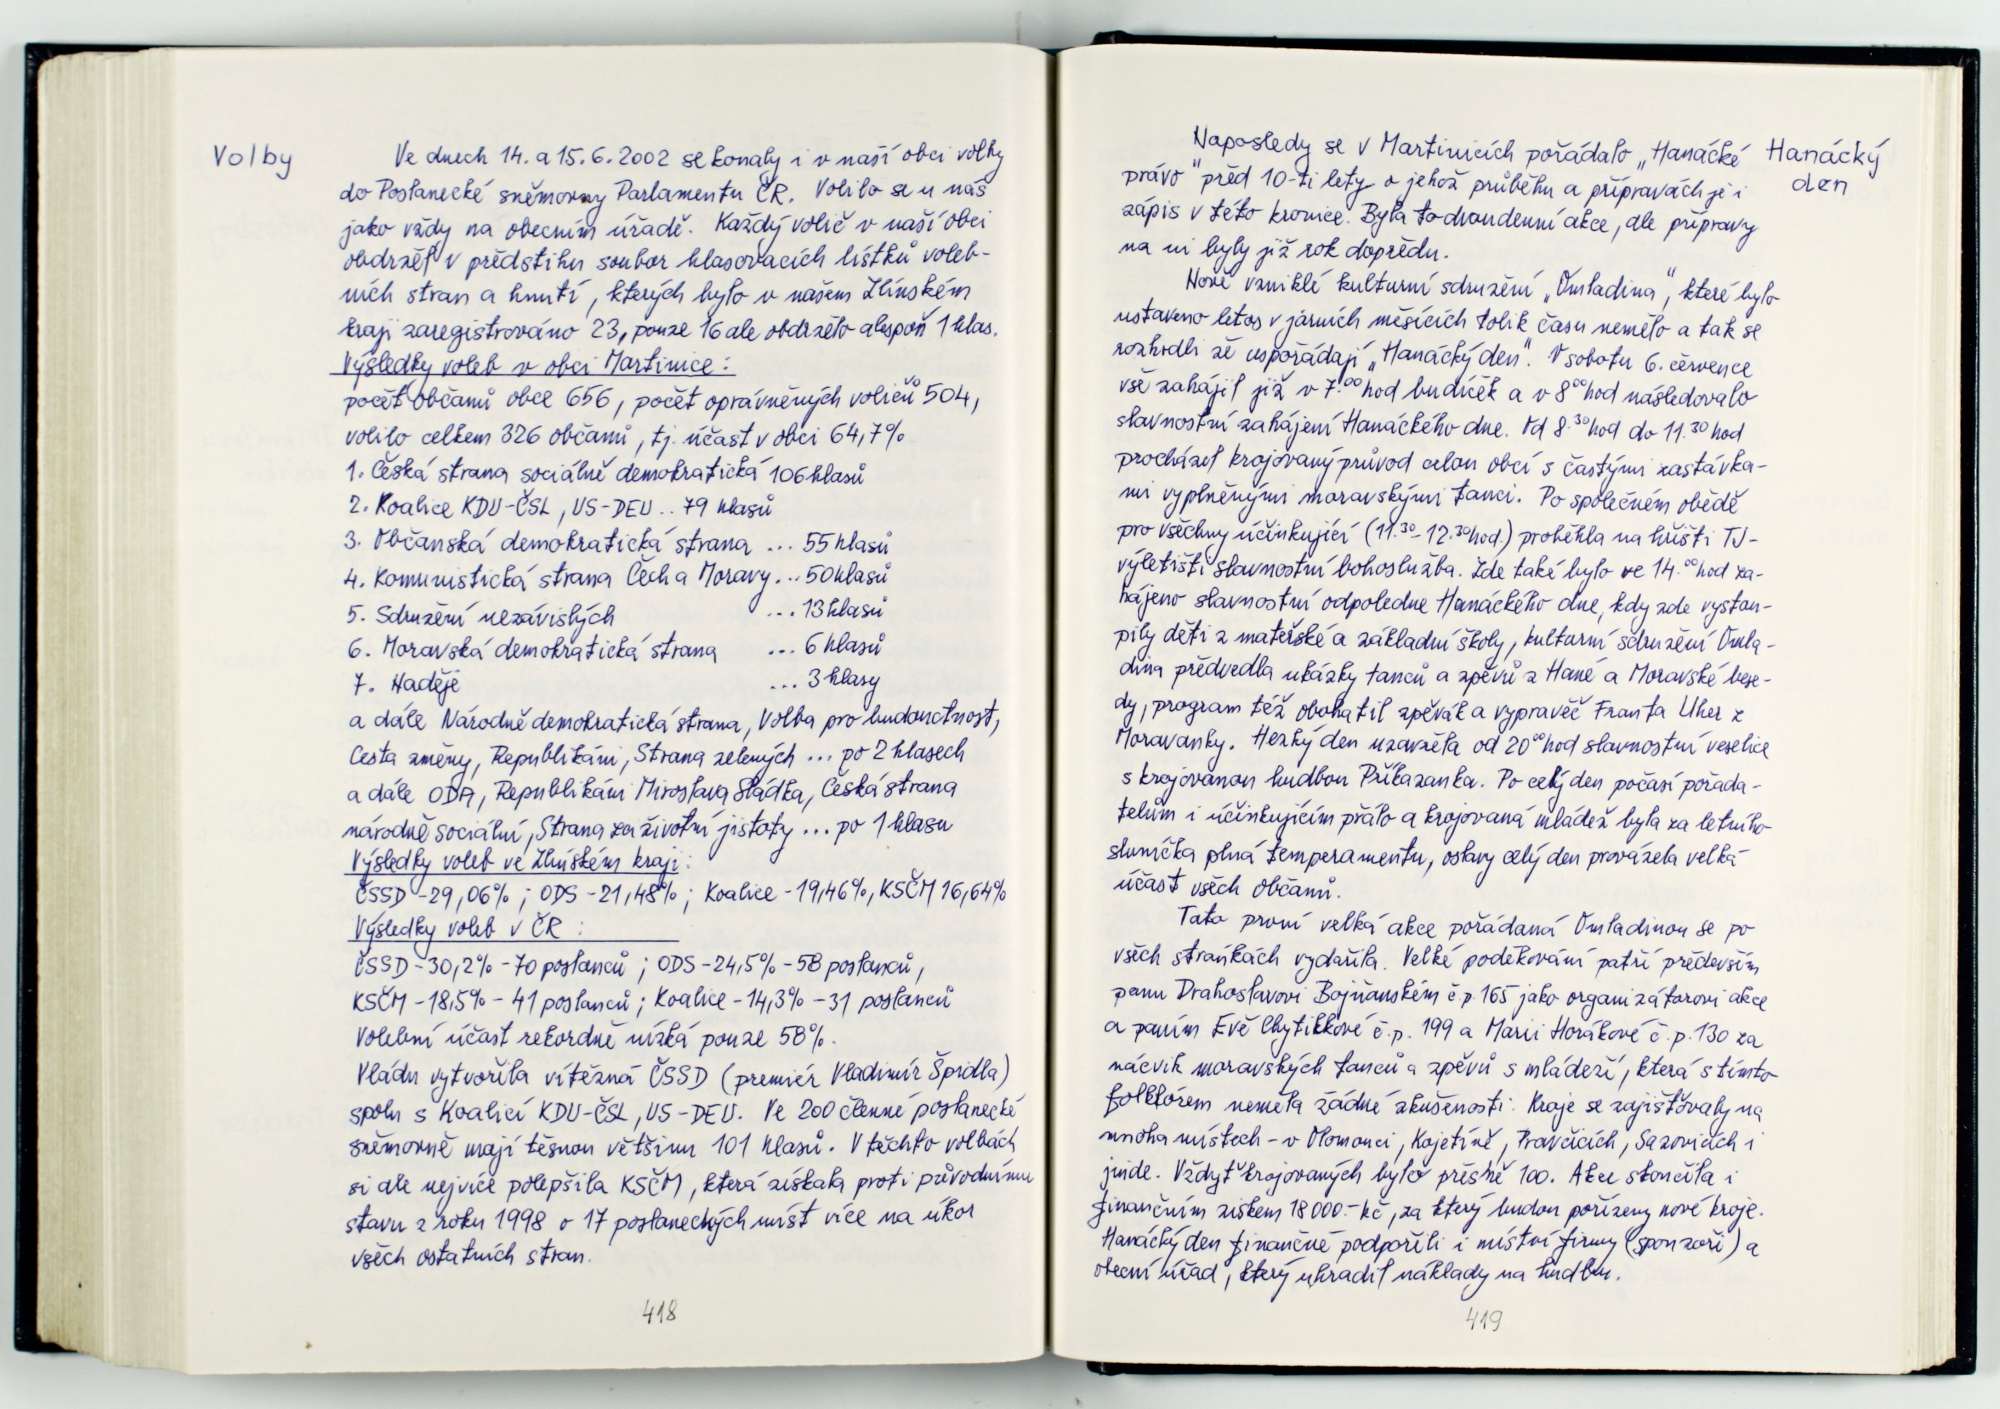 Volby
Ve dnech 14. a 15. 6. 2002 se konaly i v naší obci volby
do Poslanecké sněmovny Parlamentu ČR. Volilo se u nás
jako vždy na obecním úřadě. Každý volič v naší obci
obdržel v předstihu soubor hlasovacích lístků voleb-
ních stran a hnutí, kterých bylo v našem Zlínském
kraji zaregistrováno 23, pouze 16 ale obdrželo alespoň 1 hlas.
Výsledky voleb v obci Martinice:
počet občanů obce 656, počet oprávněných voličů 504,
volilo celkem 326 občanů, tj. účast v obci 64,7%
1. Česká strana sociálně demokratická 106 hlasů
2. Koalice KDU-ČSL, US-DEU .. 79 hlasů
3. Občanská demokratická strana ... 55 hlasů
4. Komunistická strana Čech a Moravy ... 50 hlasů
5. Sdružení nezávislých ... 13 hlasů
6. Moravská demokratická strana ... 6 hlasů
7. Naděje ... 3 hlasy
a dále Národně demokratická strana, Volba pro budouctnost,
Cesta změny, Republikáni, Strana zelených ... po 2 hlasech
a dále ODA, Republikáni Miroslava Sládka, Česká strana
národně sociální, Strana za životní jistoty ... po 1 hlasu
Výsledky voleb ve Zlínském kraji:
ČSSD - 29,06% ; ODS - 21,48% ; Koalice - 19,46%, KSČM 16,64%
Výsledky voleb v ČR :
ČSSD - 30,2% - 70 poslanců ; ODS - 24,5% - 58 poslanců,
KSČM - 18,5% - 41 poslanců ; Koalice - 14,3% - 31 poslanců
Volební účast rekordně nízká pouze 58%.
Vládu vytvořila vítězná ČSSD (premiér Vladimír Špidla)
spolu s Koalicí KDU-ČSL, US-DEU. Ve 200 členné poslanecké
sněmovně mají těsnou většinu 101 hlasů. V těchto volbách
si ale nejvíce polepšila KSČM, která získala proti původnímu
stavu z roku 1998 o 17 poslaneckých míst více na úkor
všech ostatních stran.
418
Hanácký
den
Naposledy se v Martinicích pořádalo „Hanácké
právo" před 10-ti lety o jehož průběhu a přípravách je i
zápis v této kronice. Byla to dvoudenní akce, ale přípravy
na ni byly již rok dopředu.
Nově vzniklé kulturní sdružení „Omladina", které bylo
ustaveno letos v jarních měsících tolik času nemělo a tak se
rozhodli že uspořádají „Hanácký den". V sobotu 6. července
vše zahájil již v 7.00 hod budíček a v 8 00 hod následovalo
slavnostní zahájení Hanáckého dne. Od 8.30 hod do 11.30 hod
procházel krojovaný průvod celou obcí s častými zastávka-
mi vyplněnými moravskými tanci. Po společném obědě
pro všechny účinkující (11.30-12.30 hod.) proběhla na hřišti TJ-
výletišti slavnostní bohoslužba. Zde také bylo ve 14.00 hod za-
hájeno slavnostní odpoledne Hanáckého dne, kdy zde vystou-
pily děti z mateřské a základní školy, kulturní sdružení Omla-
dina předvedla ukázky tanců a zpěvů z Hané a Moravské bese-
dy, program též obohatil zpěvák a vypravěč Franta Uher z
Moravanky. Hezký den uzavřela od 20 00 hod slavnostní veselice
s krojovanou hudbou Příkazanka. Po celý den počasí pořada-
telům i účinkujícím přálo a krojovaná mládež byla za letního
sluníčka plná temperamentu, oslavy celý den provázela velká
účast všech občanů.
Tato první velká akce pořádaná Omladinou se po
všech stránkách vydařila. Velké poděkování patří především
panu Drahoslavovi Bojňanském č.p. 165 jako organizátorovi akce
a paním Evě Chytilkové č.p. 199 a Marii Horákové č.p. 130 za
nácvik moravských tanců a zpěvů s mládeží, která s tímto
folklórem neměla žádné zkušenosti. Kroje se zajišťovaly na
mnoha místech - v Olomouci, Kojetíně, Pravčicích, Sazovicích i
jinde. Vždyť krojovaných bylo přesně 100. Akce skončila i
finančním ziskem 18000.- kč, za který budou pořízeny nové kroje.
Hanácký den finančně podpořili i místní firmy (sponzoři) a
obecní úřad, který uhradil náklady na hudbu.
419